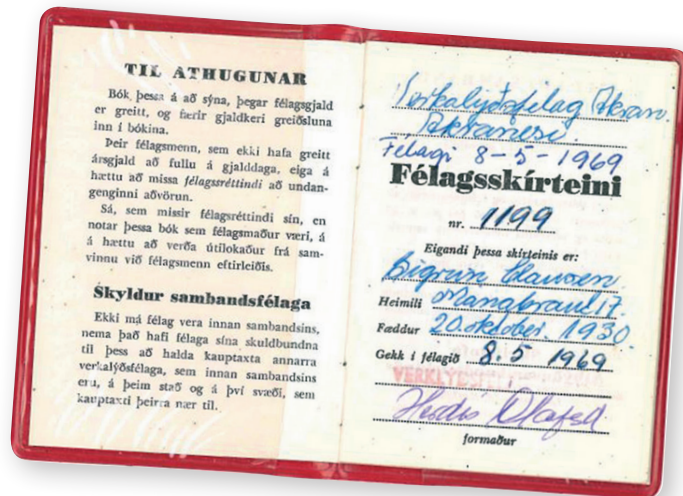 TIL ATHUGUNAR
Bók þessa á að sýna, þegar félagsgjald
er greitt, og færir gjaldkeri greiðsluna
inn í bókina.
Þeir félagsmenn, sem ekki hafa greitt
ársgjald að fullu á gjalddaga, eiga á
hættu að missa félagsréttindi að undan-
genginni aðvörun.
Sá, sem missir félagsréttindi sín, en
notar þessa bók sem félagsmaður væri, á
á hættu að verða útilokaður frá sam-
vinnu við félagsmenn eftirleiðis.
Skyldur sambandsfélaga
Ekki má félag vera innan sambandsins,
nema það hafi félaga sína skuldbundna
til þess að halda kauptaxta annarra
verkalýðsfélaga, sem innan sambandsins
eru, á þeim stað og á því svæði, sem
kauptaxti þeirra nær til.
Verkalýðsfélag Akran.
Akranesi.
Félagi 8-5-1969
Félagsskírteini
nr. 1199
Eigandi þessa skírteinis er:
Sigrún Clausen
Heimili 17.
Fæddur 20. október. 1930.
Gekk í félagið 8.5 1969
Herdís Ólafsd
formaður